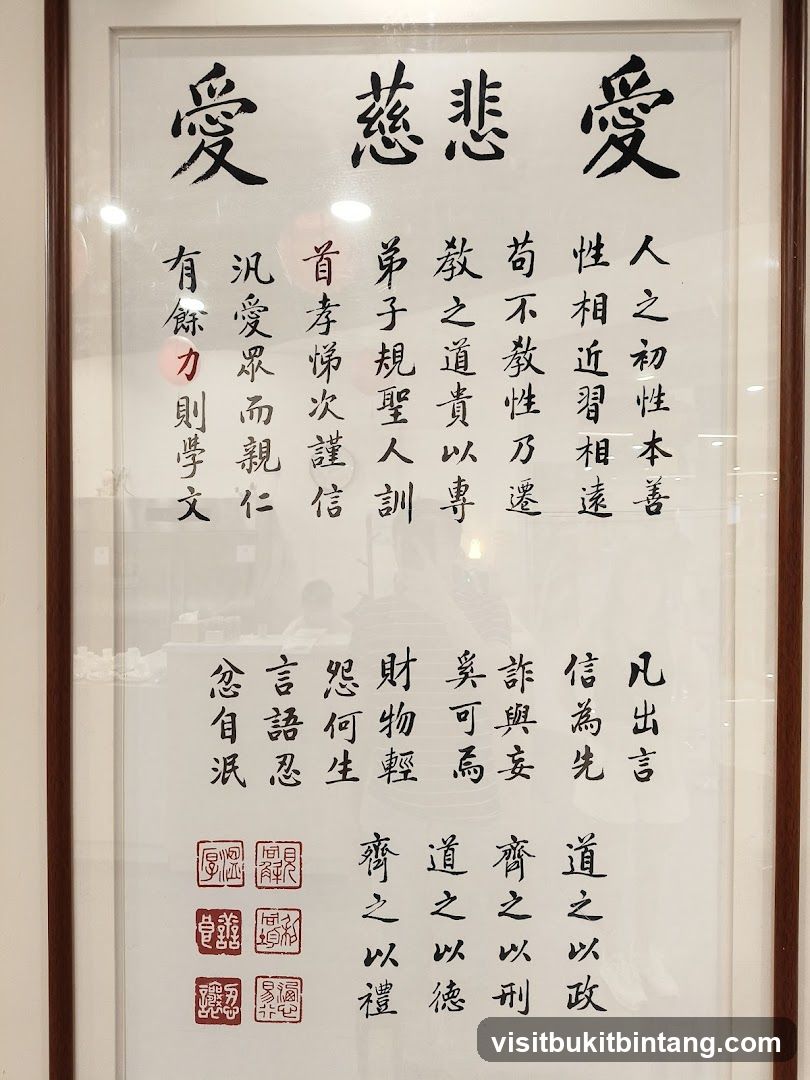 愛 慈悲 愛
人之初性本善
性相近習相遠
苟不教性乃遷
教之道貴以專
弟子規聖人訓
首孝悌次謹信
汎愛眾而親仁
有餘力則學文
凡出言
信為先
詐與妄
奚可焉
財物輕
怨何生
言語忍
忿自泯
道之以政
齊之以刑
道之以德
齊之以禮
visitbukitbintang.com